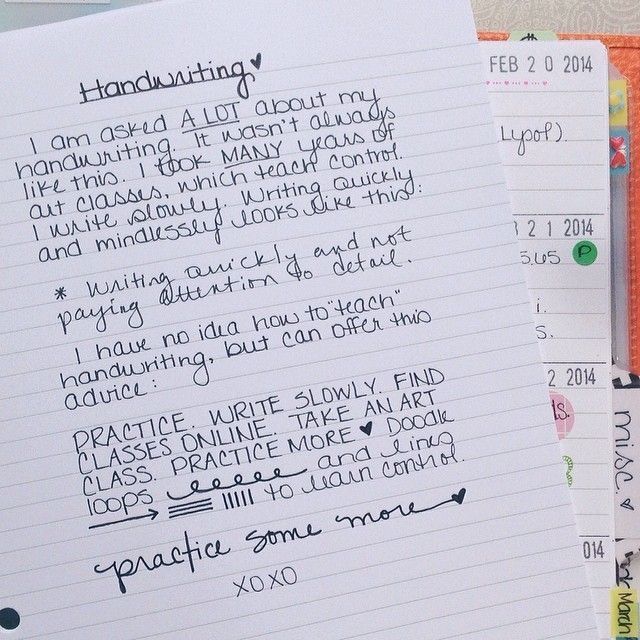 Handwriting ♥
I am asked A LOT about my
handwriting. It wasn't always
like this. I took MANY years of
art classes, which teach control.
I write slowly. Writing quickly
and mindlessly looks like this:
* Writing quickly and not
paying attention to detail.
I have no idea how to "teach"
handwriting, but can offer this
advice:
PRACTICE. WRITE SLOWLY. FIND
CLASSES ONLINE. TAKE AN ART
CLASS. PRACTICE MORE ♥ Doodle
loops and lines
to learn control.
practice some more ♥
XOXO
FEB 20 2014
Lypol).
21 2014
5.65 P
i.
s.
2 2014
ds.
misc.
014
March